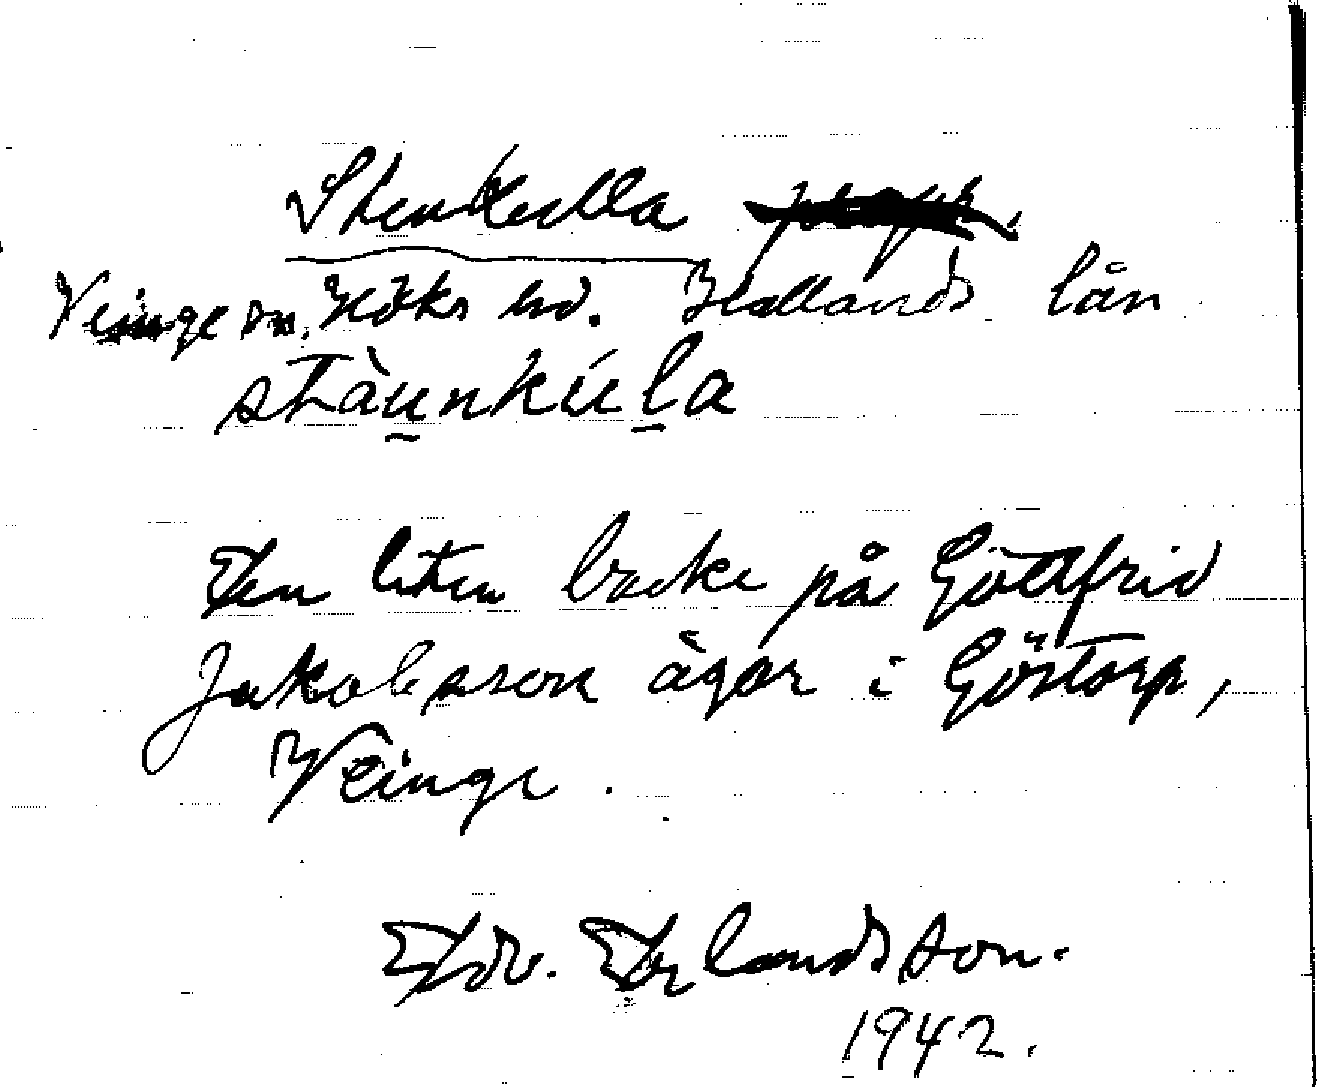 Stenkulla
Veinge sn. Höks hd. Hallands län
stàu̲nkúl̲a
En liten backe på Gottfrid
Jakobsson ägor i Göstorp,
Veinge.
Edv. Erlandsson.
1942.